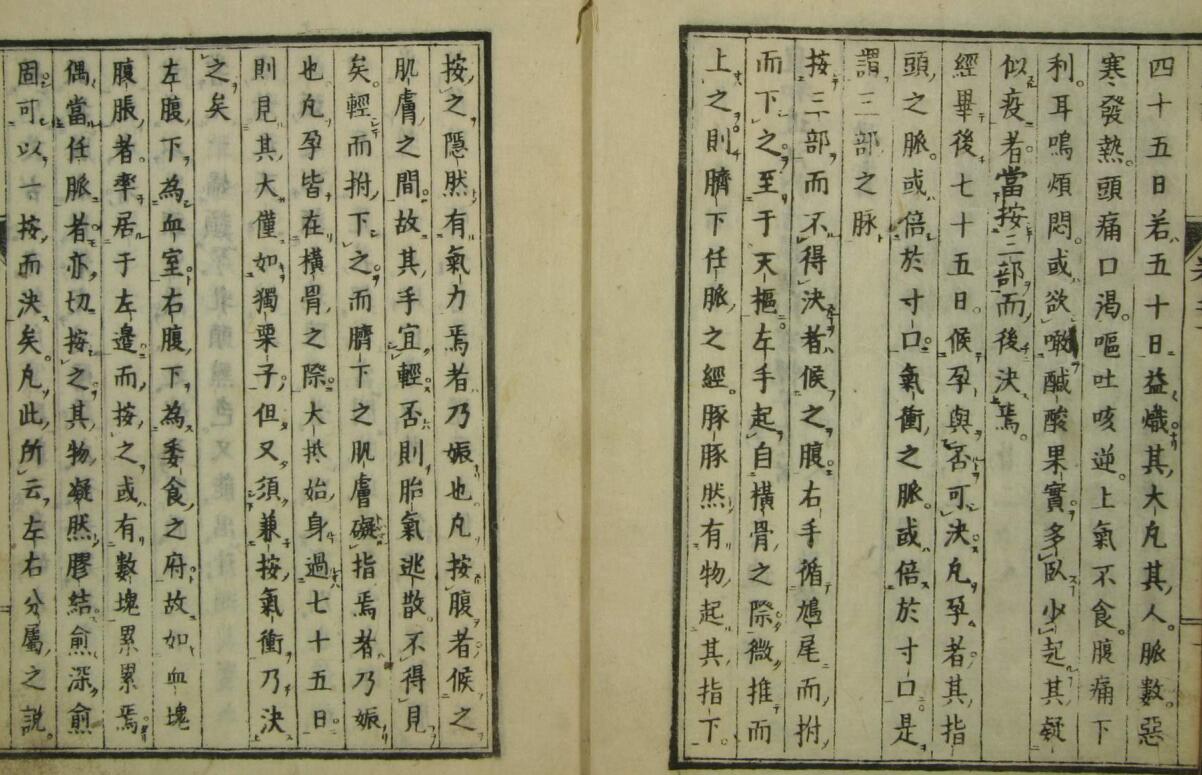 四十五日若五十日益熾其大凡其人脈數惡
寒發熱頭痛口渴嘔吐咳逆上氣不食腹痛下
利耳鳴煩悶或欲噉鹹酸果實多臥少起其疑
似疫者當按三部而後決焉
經畢後七十五日候孕與否可決凡孕者其指
頭之脈或倍於寸口氣衝之脈或倍於寸口是
謂三部之脈
按三部而不得決者候之腹右手循鳩尾而拊
而下之至于天樞左手起自橫骨之際微推而
上之則臍下任脈之經豚豚然有物起其指下
按之隱然有氣力焉者乃娠也凡按腹者候之
肌膚之間故其手宜輕否則胎氣逃散不得見
矣輕而拊下之而臍下之肌膚礙指焉者乃娠
也凡孕皆在橫骨之際大抵始身過七十五日
則見其大僅如獨栗子但又須兼按氣衝乃決
之矣
左腹下為血室右腹下為委食之府故如血塊
腹脹者率居于左邉而按之或有數塊累累焉
偶當任脈者亦切按之其物凝然膠結愈深愈
固可以一按而決矣凡此所云左右分屬之說